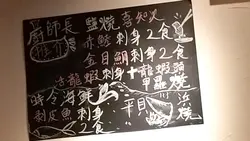 廚師長
推介
鹽燒喜知次
赤鯥刺身2食
金目鯛刺身2食
活龍蝦刺身+龍蝦頭
甲羅燒
時令海鮮
剥皮魚刺身
2食
平貝
浜燒